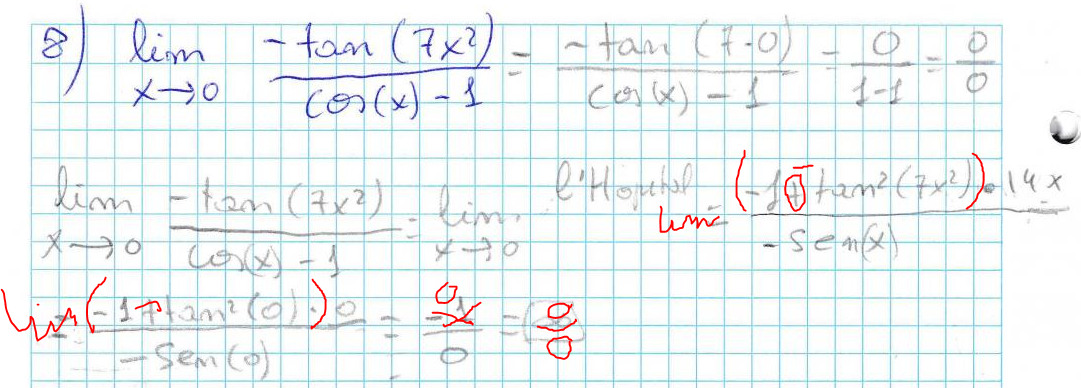 8) lim x→0 -tan(7x²)/(cos(x)-1) = -tan(7·0)/(cos(x)-1) = 0/(1-1) = 0/0
lim x→0 -tan(7x²)/(cos(x)-1) = lim x→0 l'Hopital lim = (-1-tan²(7x²))·14x/(-sen(x))
lim = (-1-tan²(0))·0/(-sen(0)) = 0/0 = 0/0